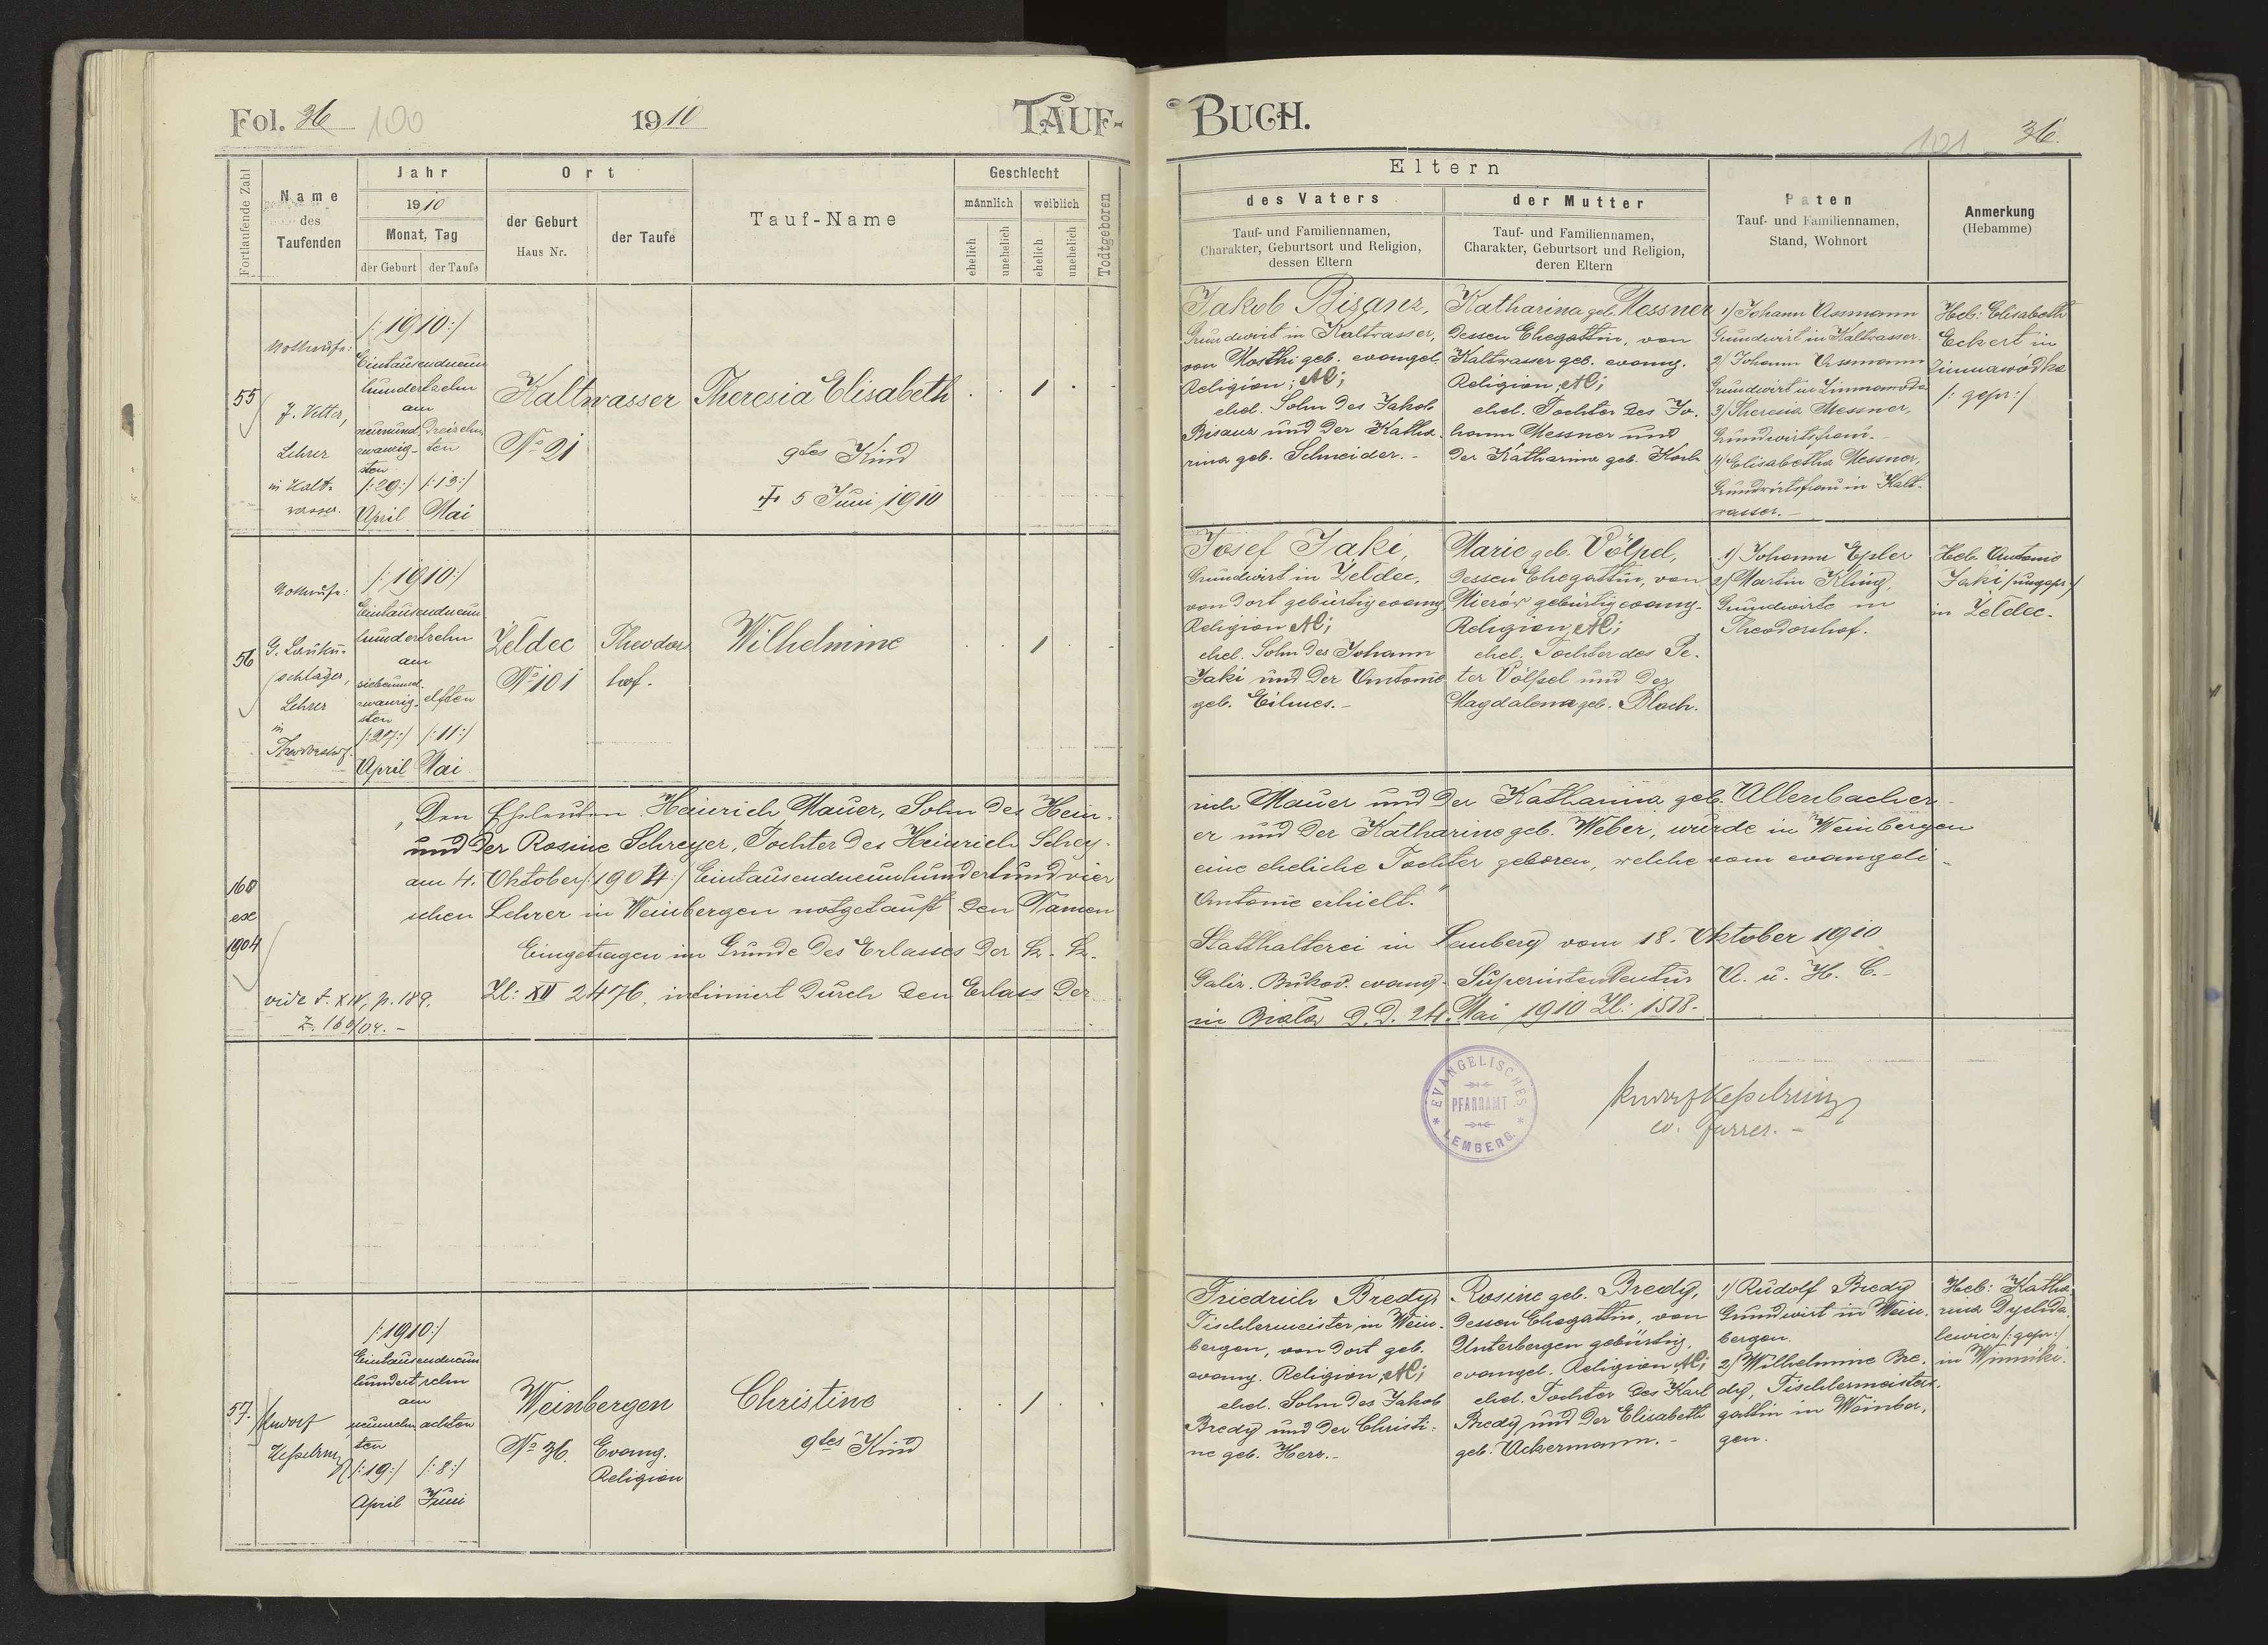 Fol. 36 100
1910
TAUF-
BUCH.
101 36.
Fortlaufende Zahl
Name
des
Taufenden
Jahr
1910
Monat, Tag
der Geburt
der Taufe
Ort
der Geburt
Haus Nr.
der Taufe
Tauf-Name
Geschlecht
männlich
weiblich
ehelich
unehelich
ehelich
unehelich
Todtgeboren
Eltern
des Vaters
Tauf- und Familiennamen,
Charakter, Geburtsort und Religion,
dessen Eltern
der Mutter
Tauf- und Familiennamen,
Charakter, Geburtsort und Religion,
deren Eltern
Paten
Tauf- und Familiennamen,
Stand, Wohnort
Anmerkung
(Hebamme)
55
J. Vetter,
Lehrer
in Kalt-
wasser.
/:1910:/
Eintausendneun
hundertzehn
am
neunund
zwanzig-
sten
/:29:/
April
Dreizehn
ten
/:13:/
Mai
Kaltwasser
No 21
Theresia Elisabeth
9tes Kind
5 Juni 1910
1
Jakob Bisanz,
Grundwirt in Kaltwasser,
von Mosthi geb. evangel.
Religion; AC;
ehel. Sohn des Jakob
Bisanz und der Katha-
rina geb. Schneider.-
Katharina geb. Messner
dessen Ehegattin, von
Kaltwasser geb. evang.
Religion, AC;
ehel. Tochter des Jo-
hann Messner und
der Katharina geb. Korb
1) Johann Assmann
Grundwirt in Kaltwasser.
2) Johann Assmann
Grundwirt in Zimnawoda
3) Theresia Messner,
Grundwirtsfrau.
4) Elisabetha Messner,
Grundwirtsfrau in Kalt-
wasser.-
Heb: Elisabeth
Eckert in
Zimnawódka
/: gepr:/
56
Lehrer
in
Theodorshof.
/:1910:/
Eintausendneun
hundertzehn
am
siebenund-
zwanzig-
sten
/:27:/
April
elften
/:11:/
Mai
Żeldec
No 101
Theodors
hof.
Wilhelmine
1
Josef Jaki,
Grundwirt in Żeldec,
von dort gebürtig evang
Religion AC;
ehel. Sohn des Johann
Jaki und der Antonie
geb. Eilmes.-
Marie geb. Völpel,
dessen Ehegattin, von
Mierów gebürtig evang-
Religion, AC;
ehel. Tochter des Pe-
ter Völpel und der
Magdalena geb. Bloch.
1) Johann Epler
2) Martin Kling,
Grundwirte in
Theodorshof.
Heb. Antonie
Jaki /ungepr:/
in Żeldec.
160
ex
1904
vide t. XIV, p. 189.
Z. 160/04.-
"Den Eheleuten Heinrich Mauer, Sohn des Hein-
rich Mauer und der Katharina geb. Allenbacher
und der Rosine Schreyer, Tochter des Heinrich Schey-
er und der Katharine geb. Weber, wurde in Weinbergen
am 4. Oktober /:1904:/ Eintausendneunhundertundvier
eine eheliche Tochter geboren, welche vom evangeli-
schen Lehrer in Weinbergen notgetauft den Namen
Antonie erhielt."
Eingetragen im Grunde des Erlasses der k. k.
Statthalterei in Lemberg vom 18. Oktober 1910
Zl: XII 2476, intimiert durch den Erlass der
Galiz. Bukov. evang. Superintendentur A. u. H. C.-
in Biala d. d. 24. Mai 1910 Zl: 1518.-
* EVANGELISCHES *
PFARRAMT
LEMBERG
Kesselring
ev. Pfarrer.-
57.
Kesselring
/:1910:/
Eintausendneun
hundert zehn
am
neunzehn
ten
/:19:/
April
achten
/:8:/
Juni
Weinbergen
No 36.
Evang.
Religion
Christine
9tes Kind
1
Friedrich Bredy,
Tischlermeister in Wein-
bergen, von dort geb.
evang. Religion, AC;
ehel. Sohn des Jakob
Bredy und der Christi-
ne geb. Herr.-
Rosine geb. Bredy,
dessen Ehegattin, von
Unterbergen gebürtig,
evangel. Religion AC;
ehel. Tochter des Karl
Bredy und der Elisabeth
geb. Ackermann.-
1) Rudolf Bredy
Grundwirt in Wein-
bergen.
2) Wilhelmine Bre-
dy, Tischlermeisters-
gattin in Weinber-
gen.
Heb: Katha-
rina
lewicz /: gepr:/
in Winniki.